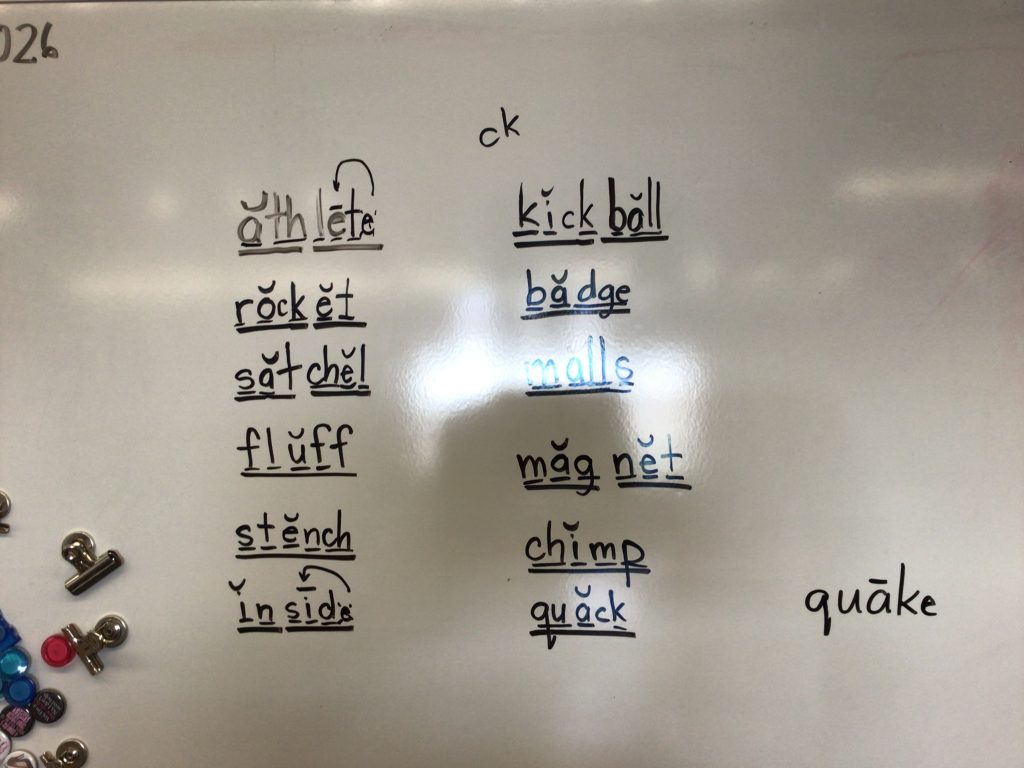 026
ck
ăth lēte
kĭck băll
rŏck ĕt
bădge
săt chĕl
malls
flŭff
măg nĕt
stĕnch
chĭmp
ĭn sīde
quăck
quāke